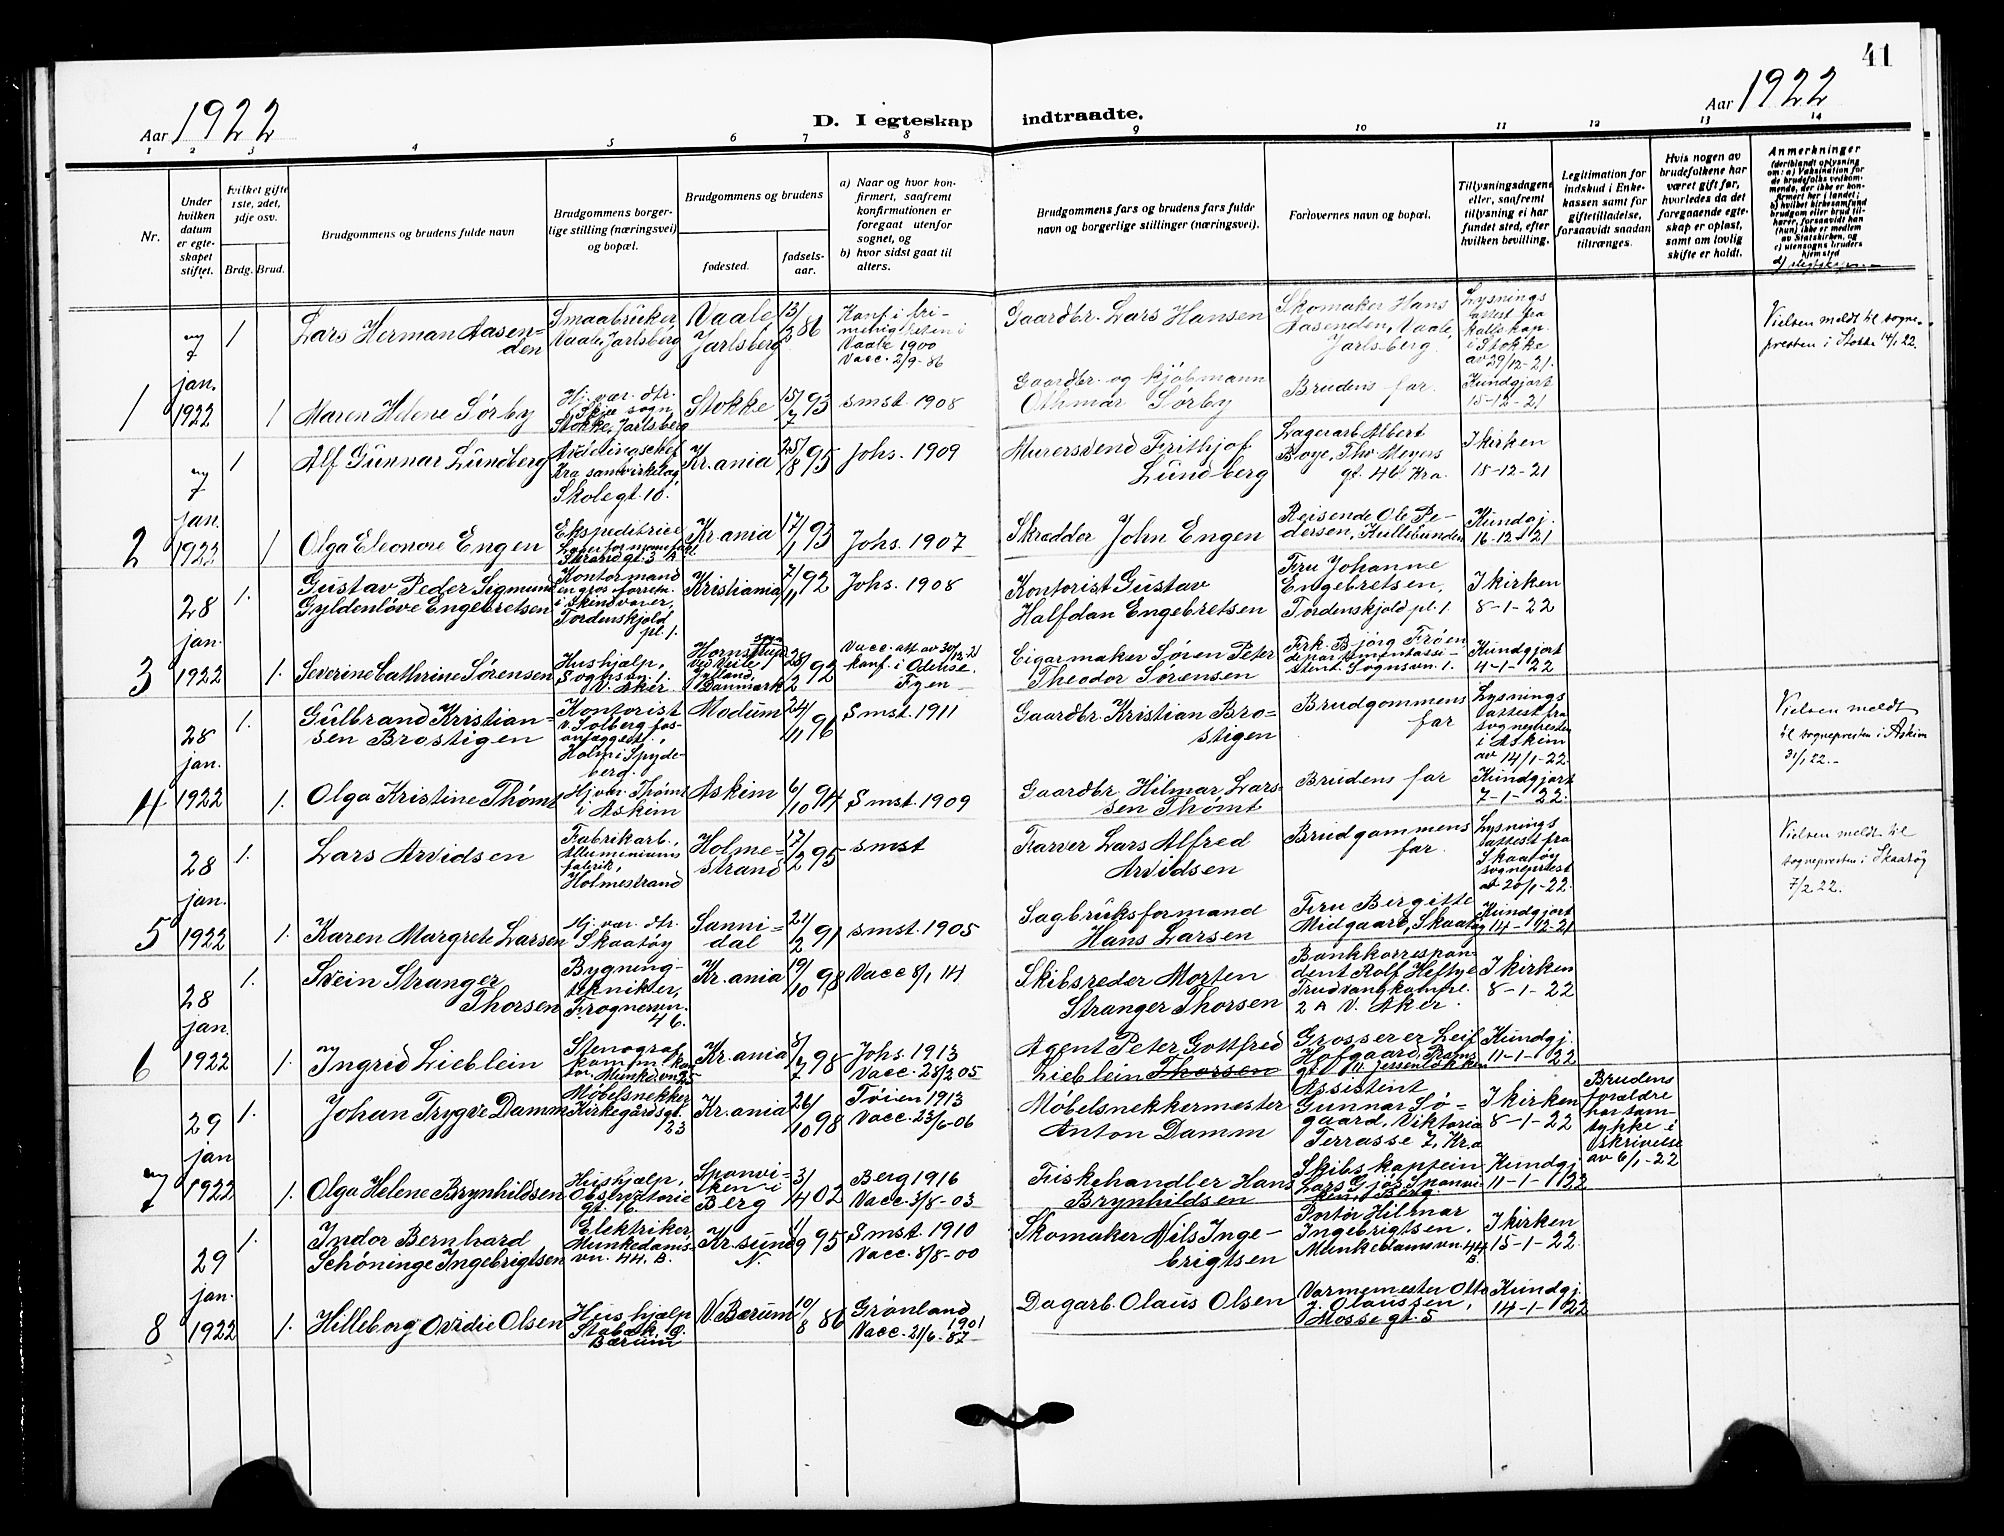 41
Aar 1922
D. I egteskap
indtraadte.
Aar 1922
1 2 3 4 5 6 7 8 9 10 11 12 13 14
Nr.
Under
hvilken
datum
er egte-
skapet
stiftet.
Hvilket gifte
1ste, 2det,
3dje osv.
Brdg.
Brud.
Brudgommens og brudens fulde navn
Brudgommens borger-
lige stilling (næringsvei)
og bopæl.
Brudgommens og brudens
fødested.
fødsels-
aar.
a) Naar og hvor kon-
firmert, saafremt
konfirmationen er
foregaat utenfor
sognet, og
b) hvor sidst gaat til
alters.
Brudgommens fars og brudens fars fulde
navn og borgerlige stillinger (næringsvei).
Forlovernes navn og bopæl.
Tillysningsdagene
eller, saafremt
tillysning ei har
fundet sted, efter
hvilken bevilling.
Legitimation for
indskud i Enke-
kassen samt for
giftetilladelse,
forsaavidt saadan
tiltrænges.
Hvis nogen av
brudefolkene har
været gift før,
hvorledes da det
foregaaende egte-
skap er opløst,
samt om lovlig
skifte er holdt.
Anmerkninger
(deriblandt oplysning
om: a) Vaksination for
de brudefolks vedkom-
mende, der ikke er kon-
firmert her i landet;
b) hvilket kirkesamfund
brudgom eller brud til-
hører, forsaavidt han
(hun) ikke er medlem
av Statskirken, og
c) utensogns bruders
hjemsted
1
7
jan.
1922
1
Lars Herman Aasen-
den
Smaabruker,
Vaale, Jarlsberg
Vaale
Jarlsberg
13/3 86
Konf. i fri-
menigheten i
Vaale 1900
Vacc. 2/9-86
Gaardbr. Lars Hansen
Skomaker Hans
Aasenden, Vaale,
Jarlsberg.
Lysnings
attest fra
i Stokke
av 29/12-21.
Vielsen meldt til sogne-
presten i Stokke 14/1 22.
1
Maren Helene Sørby
Hj. vær. dtr.
Skje sogn,
Stokke, Jarlsberg
Stokke
15/7 93
smst. 1908
Gaardbr. og kjøbmann
Othmar Sørby
Brudens far.
Kundgjort
15-12-21
2
7
jan.
1922
1
Alf Gunnar Lundberg
Avdelingschef
Kra samvirkelag,
Skolegt. 10.
Kr.ania
25/8 95
Johs. 1909
Murersvend Frithjof
Lundberg
Lagerarb. Albert
Boye, Thv. Meyers
gt. 46. Kra.
I kirken
18-12-21
1
Olga Eleonore Engen
Ekspeditrice
Kr.ania
17/1 93
Johs. 1907
Skrædder John Engen
Reisende Ole Pe-
dersen, Kullebunden
Kundgj.
16-12-1921
3
28
jan.
1922
1.
Gustav Peder Sigmund
Gyldenløve Engebretsen
Kontormand
en gros forretn.
i skindvarer,
Tordenskjold
pl. 1.
Kristiania
7/11 92
Johs. 1908
Kontorist Gustav
Halfdan Engebretsen
Fru Johanne
Engebretsen,
Tordenskjold pl. 1.
I kirken
8-1-22
1.
Severine Cathrine Sørensen
Hushjælp,
Sognsvn. 1.
V. Aker
Hornstrup
sogn
ved Veile
Jylland,
Danmark
28/2 92
Vacc. att. av 30/12-21
konf. i Odense
Fyen
Cigarmaker Søren Peter
Theodor Sørensen
Frk. Bjørg Frøen
departementassi-
stent. Sognsvn. 1.
Kundgjort
4-1-22
4
28
jan.
1922
1.
Gulbrand Kristian-
sen Brostigen
Kontorist
v. Solbergfos-
anlægget,
Holm i Spyde-
berg.
Modum
24/11 96
Smst. 1911
Gaardbr. Kristian Bro-
stigen
Brudgommens
far
Lysnings
attest fra
sognepresten
i Askim
av 14/1-22.
Vielsen meldt
til sognepresten i Askim
31/1 22.-
1.
Olga Kristine Thømt
Hj. vær. Thømt
i Askim
Askim
6/10 94
Smst. 1909
Gaardbr. Hilmar Lars-
sen Thømt
Brudens far
Kundgjort
7-1-22.
5
28
jan.
1922
1.
Lars Arvidsen
Fabrikarb.,
Alluminiums
fabrik,
Holmestrand
Holme-
strand
17/2 95
smst
Farver Lars Alfred
Arvidsen
Brudgommens
far.
Lysnings
attest fra
Skaatøy
sogneprest
av 20/1-22.
Vielsen meldt til
sognepresten i Skaatøy
7/2 22.
1.
Karen Margrete Larsen
Hj. vær. dtr.
Skaatøy
Sanni-
dal
21/2 91
smst. 1905
Sagbruksformand
Hans Larsen
Fru Birgitte
Midgaard, Skaatøy
Kundgjort
14-12-21
6
28
jan.
1922
1.
Svein Stranger
Thorsen
Bygning-
tekniker,
Frognervn.
46.
Kr.ania
19/10 98
Vacc 8/1 14
Skibsreder Morten
Stranger Thorsen
Bankkorrespon-
dent Rolf Heftye
2 A V. Aker.
I kirken
8-1-22
1.
Ingrid Lieblein
Stenograf
Munkd.vn 25
Kr.ania
8/7 98
Johs. 1913
Vacc. 28/2 05
Agent Peter Gottfred
Lieblein Thorsen
Grosserer Leif
Hofgaard,
Kundgj.
11-1-1922
7
29
jan
1922
1.
Johan Trygve Damm
Møbelsnekker
Kirkegårdsgt.
23
Kr.ania
26/10 98
Tøien 1913
Vacc. 23/6-06
Møbelsnekkermester
Anton Damm
Assistent
Gunnar Sø-
gaard, Viktoria
Terrasse 7, Kra
I kirken
8-1-22
Brudens
forældre
har sam-
tykke i
skrivelse
av 6/1-22
1.
Olga Helene Brynhildsen
Hushjælp,
Observatorie
gt. 16.
Sponvi-
ken i
Berg
3/4 02
Berg 1916
Vacc. 3/8-03
Fiskehandler Hans
Brynhildsen
Skibskaptein
Lars Gjøs, Sponvi-
ken, Berg
Kundgj.
11-1-1922
8
29
jan.
1922
1.
Indor Bernhard
Schøninge Ingebrigtsen
Elektriker
Munkedams-
vn. 44. B.
Kr.sund
N.
1/9 95
Smst 1910
Vacc. 8/8-00
Skomaker Nils Inge-
brigtsen
Portør Hilmar
Ingebrigtsen,
Munkedamsvn. 44
B.
I kirken
15-1-22.
1.
Hilleborg Ovidie Olsen
Hushjælp
Stabæk, Ø.
Bærum
V. Bærum
10/8 86
Grønland
1901
Vacc. 21/6-87
Dagarb. Olaus Olsen
Varmemester Otto
J. Olaussen,
Mosse gt. 5
Kundgj.
14-1-1922